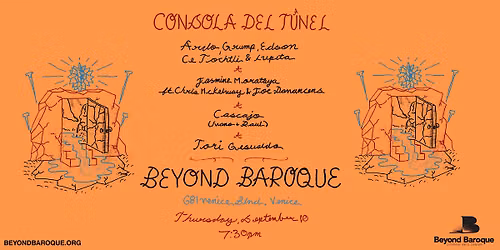 CONSOLA DEL TÚNEL
Ardo, Grump, Edson
Ce Tochtli & Lupita
Jasmine Morataya
ft. Chris McKelway & Joe
Cascajo
Tori Gesualdo
BEYOND BAROQUE
681 Venice Blvd, Venice
Thursday, September 10
7:30pm
BEYONDBAROQUE.ORG
Beyond Baroque